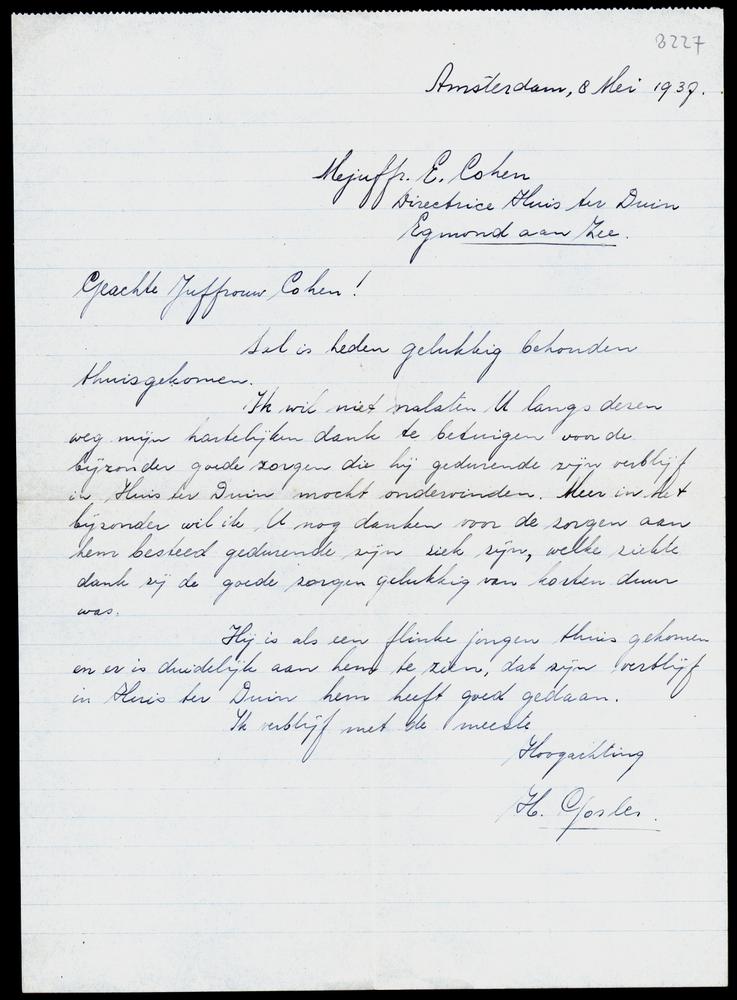 3227
Amsterdam, 8 Mei 1937.
Mejuffr. E. Cohen
Directrice Huis ter Duin
Egmond aan Zee.
Geachte Juffrouw Cohen!
Sal is heden gelukkig behouden
thuisgekomen.
Ik wil niet nalaten U langs dezen
weg mijn hartelijken dank te betuigen voor de
bijzonder goede zorgen die hij gedurende zijn verblijf
in Huis ter Duin mocht ondervinden. Meer in het
bijzonder wil ik U nog danken voor de zorgen aan
hem besteed gedurende zijn ziek zijn, welke ziekte
dank zij de goede zorgen gelukkig van korten duur
was.
Hij is als een flinke jongen thuis gekomen
en er is duidelijk aan hem te zien, dat zijn verblijf
in Huis ter Duin hem heeft goed gedaan.
Ik verblijf met de meeste
Hoogachting
H.